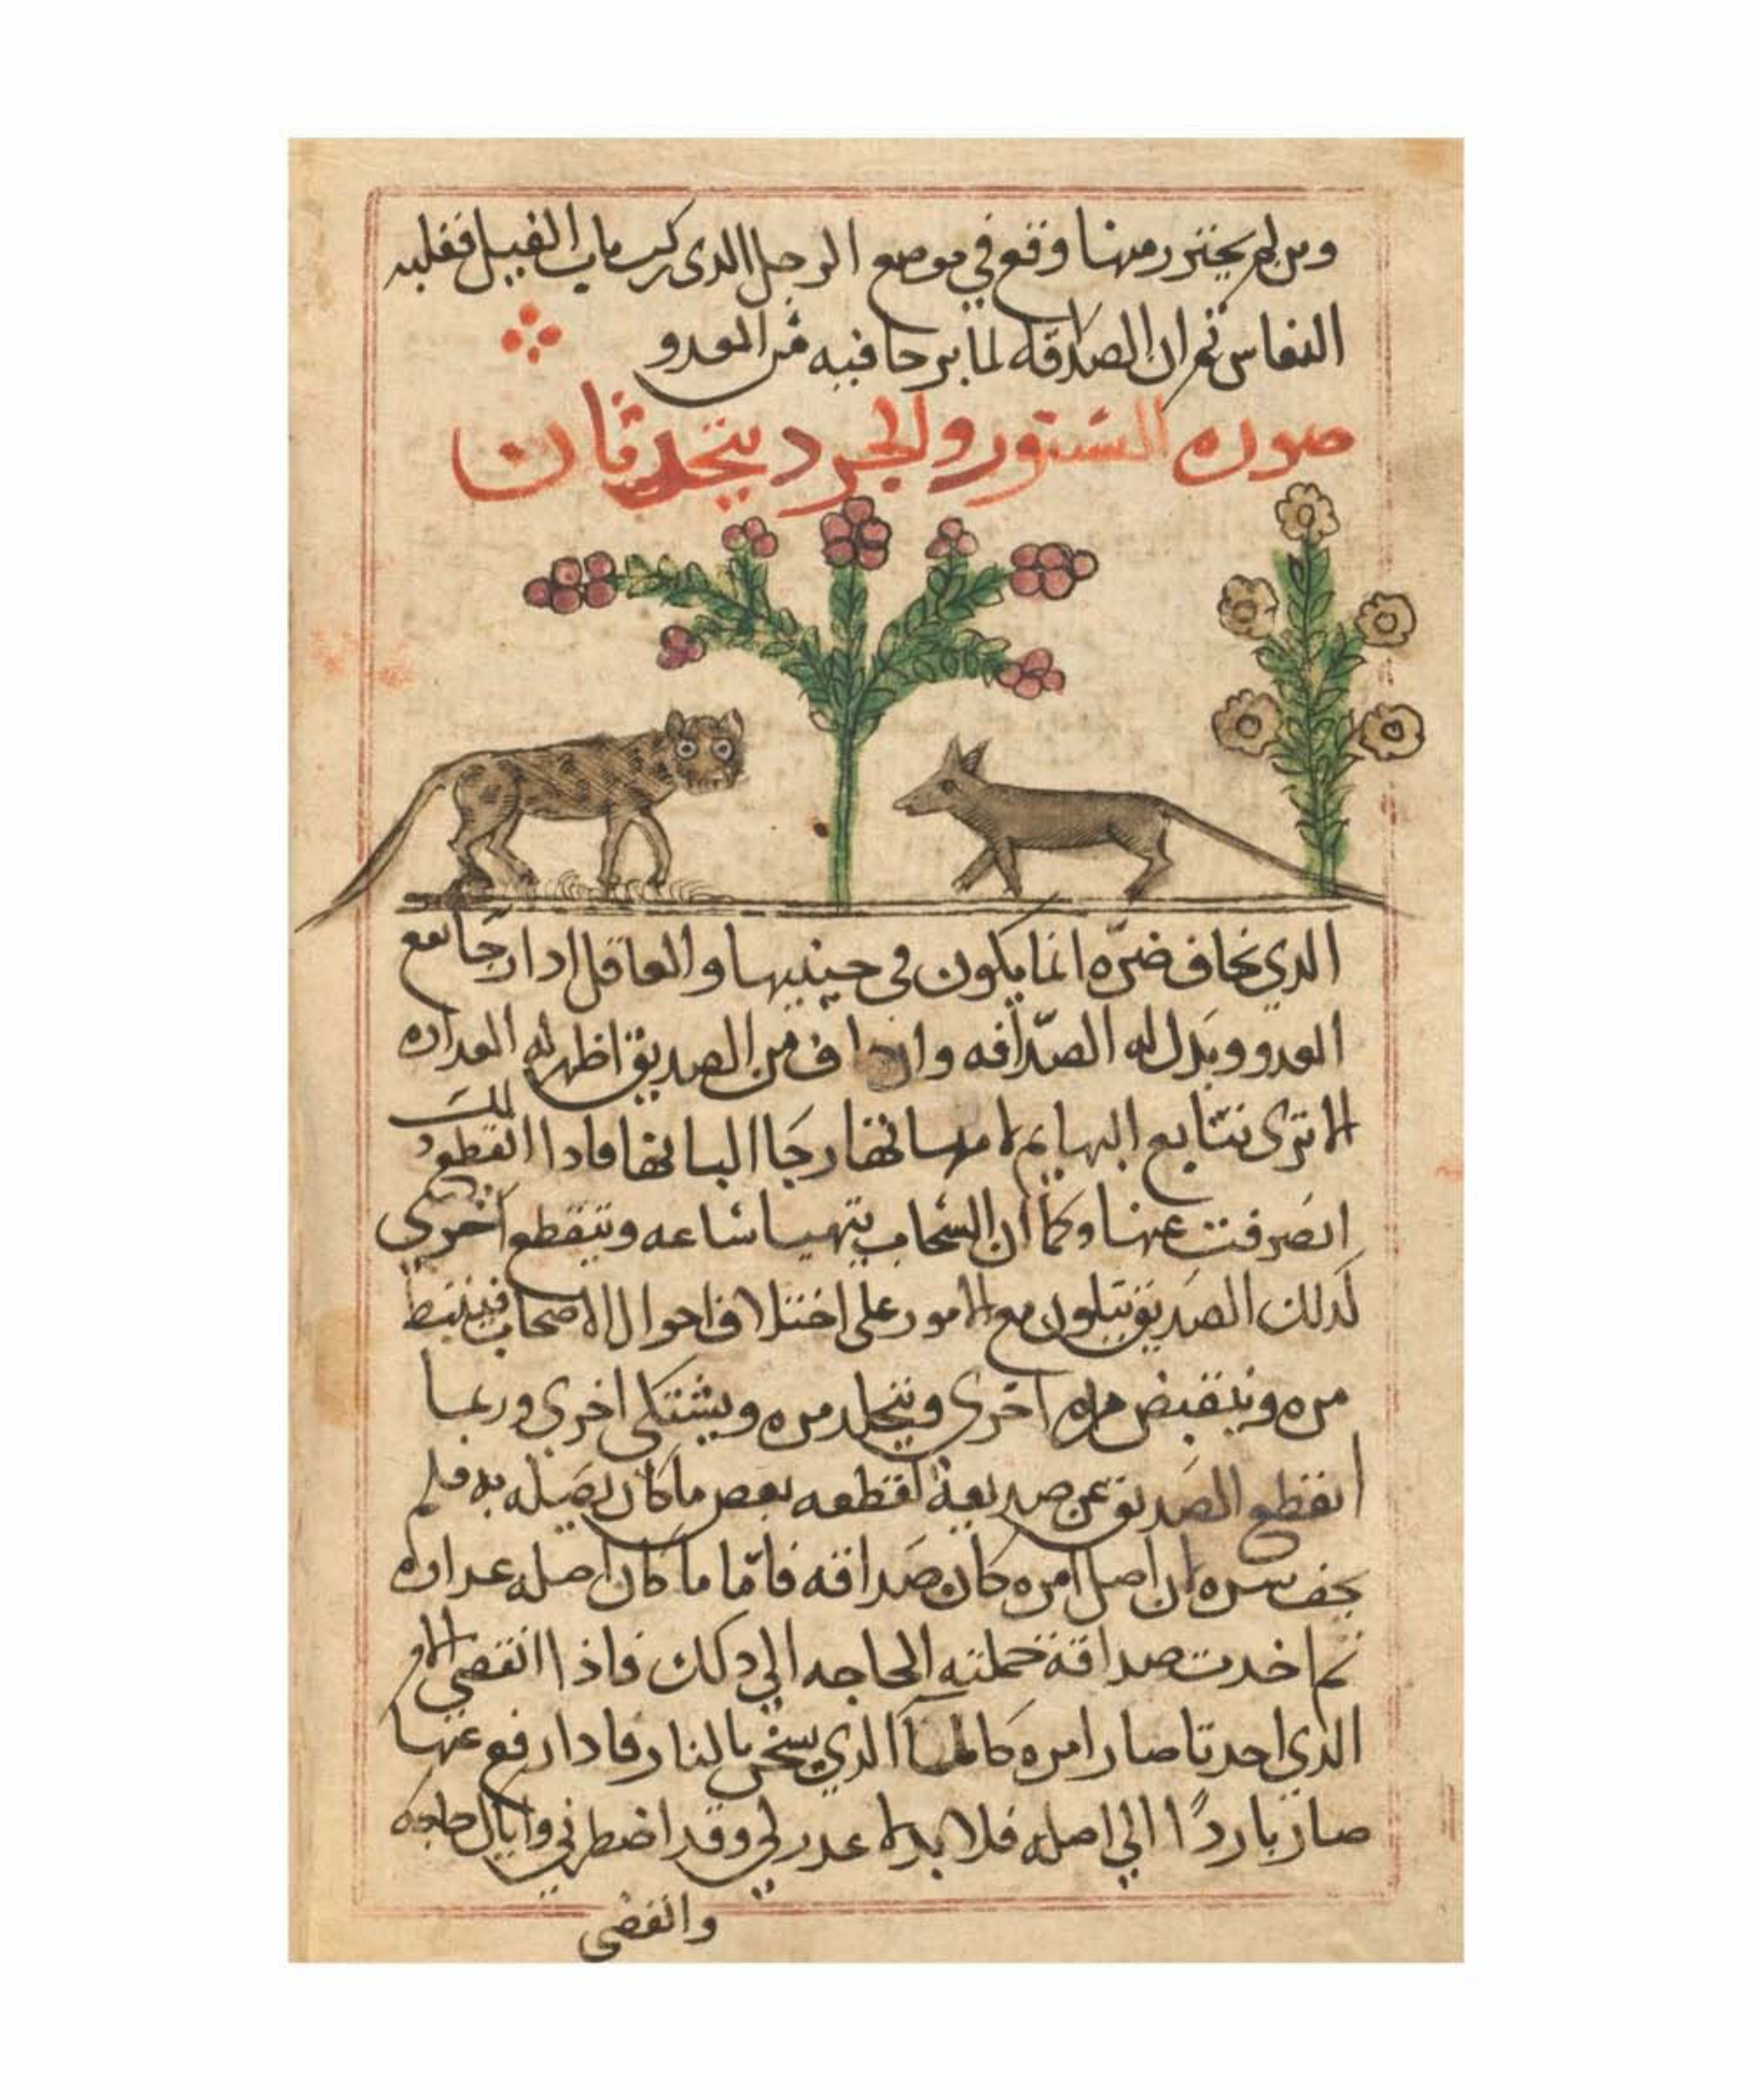 ومن لم يحترز منها وقع في موضع الرجل الدي ركب ناب الفيل فغلبه
النعاس ثم ان الصداقه لما يرجا فيه من العدو
صوره السنور والجرد يتحدثان
الدي نخاف ضره انما يكون في حينيها والعاقل ادا رجا نفع
العدو وبدل له الصداقه وان خاف من الصديق اظهر له العداوه
الا ترى تتابع البهايم امهاتها رجا البانها فادا انقطع دلك
انصرفت عنها وكما ان السحاب يتهيا ساعه وينقطع اخرى
كدلك الصديق يتلون مع الامور على اختلاف احوال الاصحاب فينبسط
مره وينقبض مره اخرى ويتجلد مره ويشتكى اخرى وربما
انقطع الصديق عن صديقه لقطعه بعض ما كان يصله به فلم
يخف شره ان اصل امره كان صداقه فاما ما كان اصله عداوه
ثم احدث صداقة حملته الحاجه الي دلك فاذا انقضى الامر
الذي احدثا صار امره كالما الذي يسخن بالنار فادا رفع عنها
صار باردًا الي اصله فلا عدو لي وقد اضطرني واياك حاجه
وانقضى